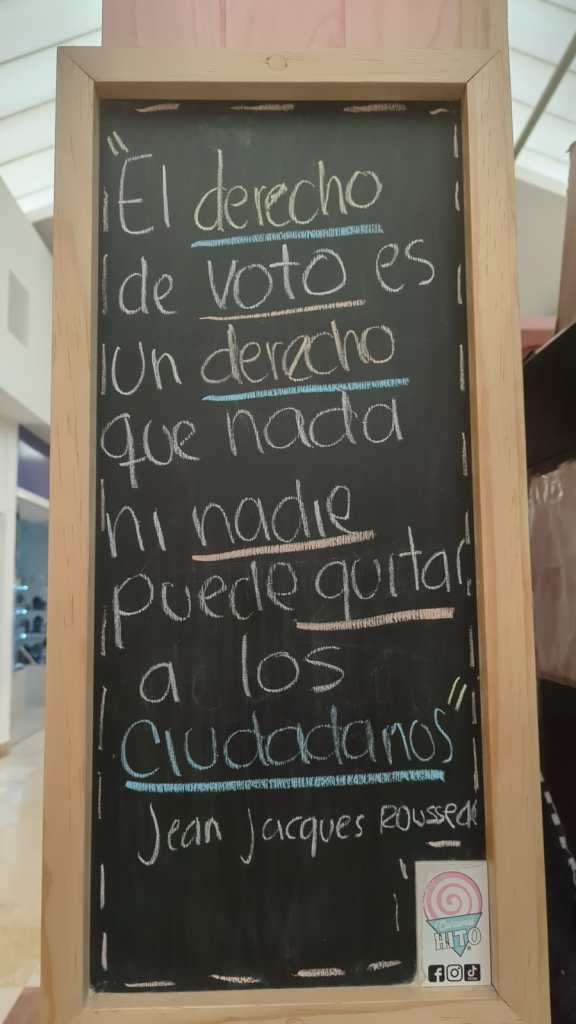 "El derecho
de voto es
un derecho
que nada
ni nadie
puede quitar
a los
ciudadanos"
Jean Jacques Rousseau
HITO